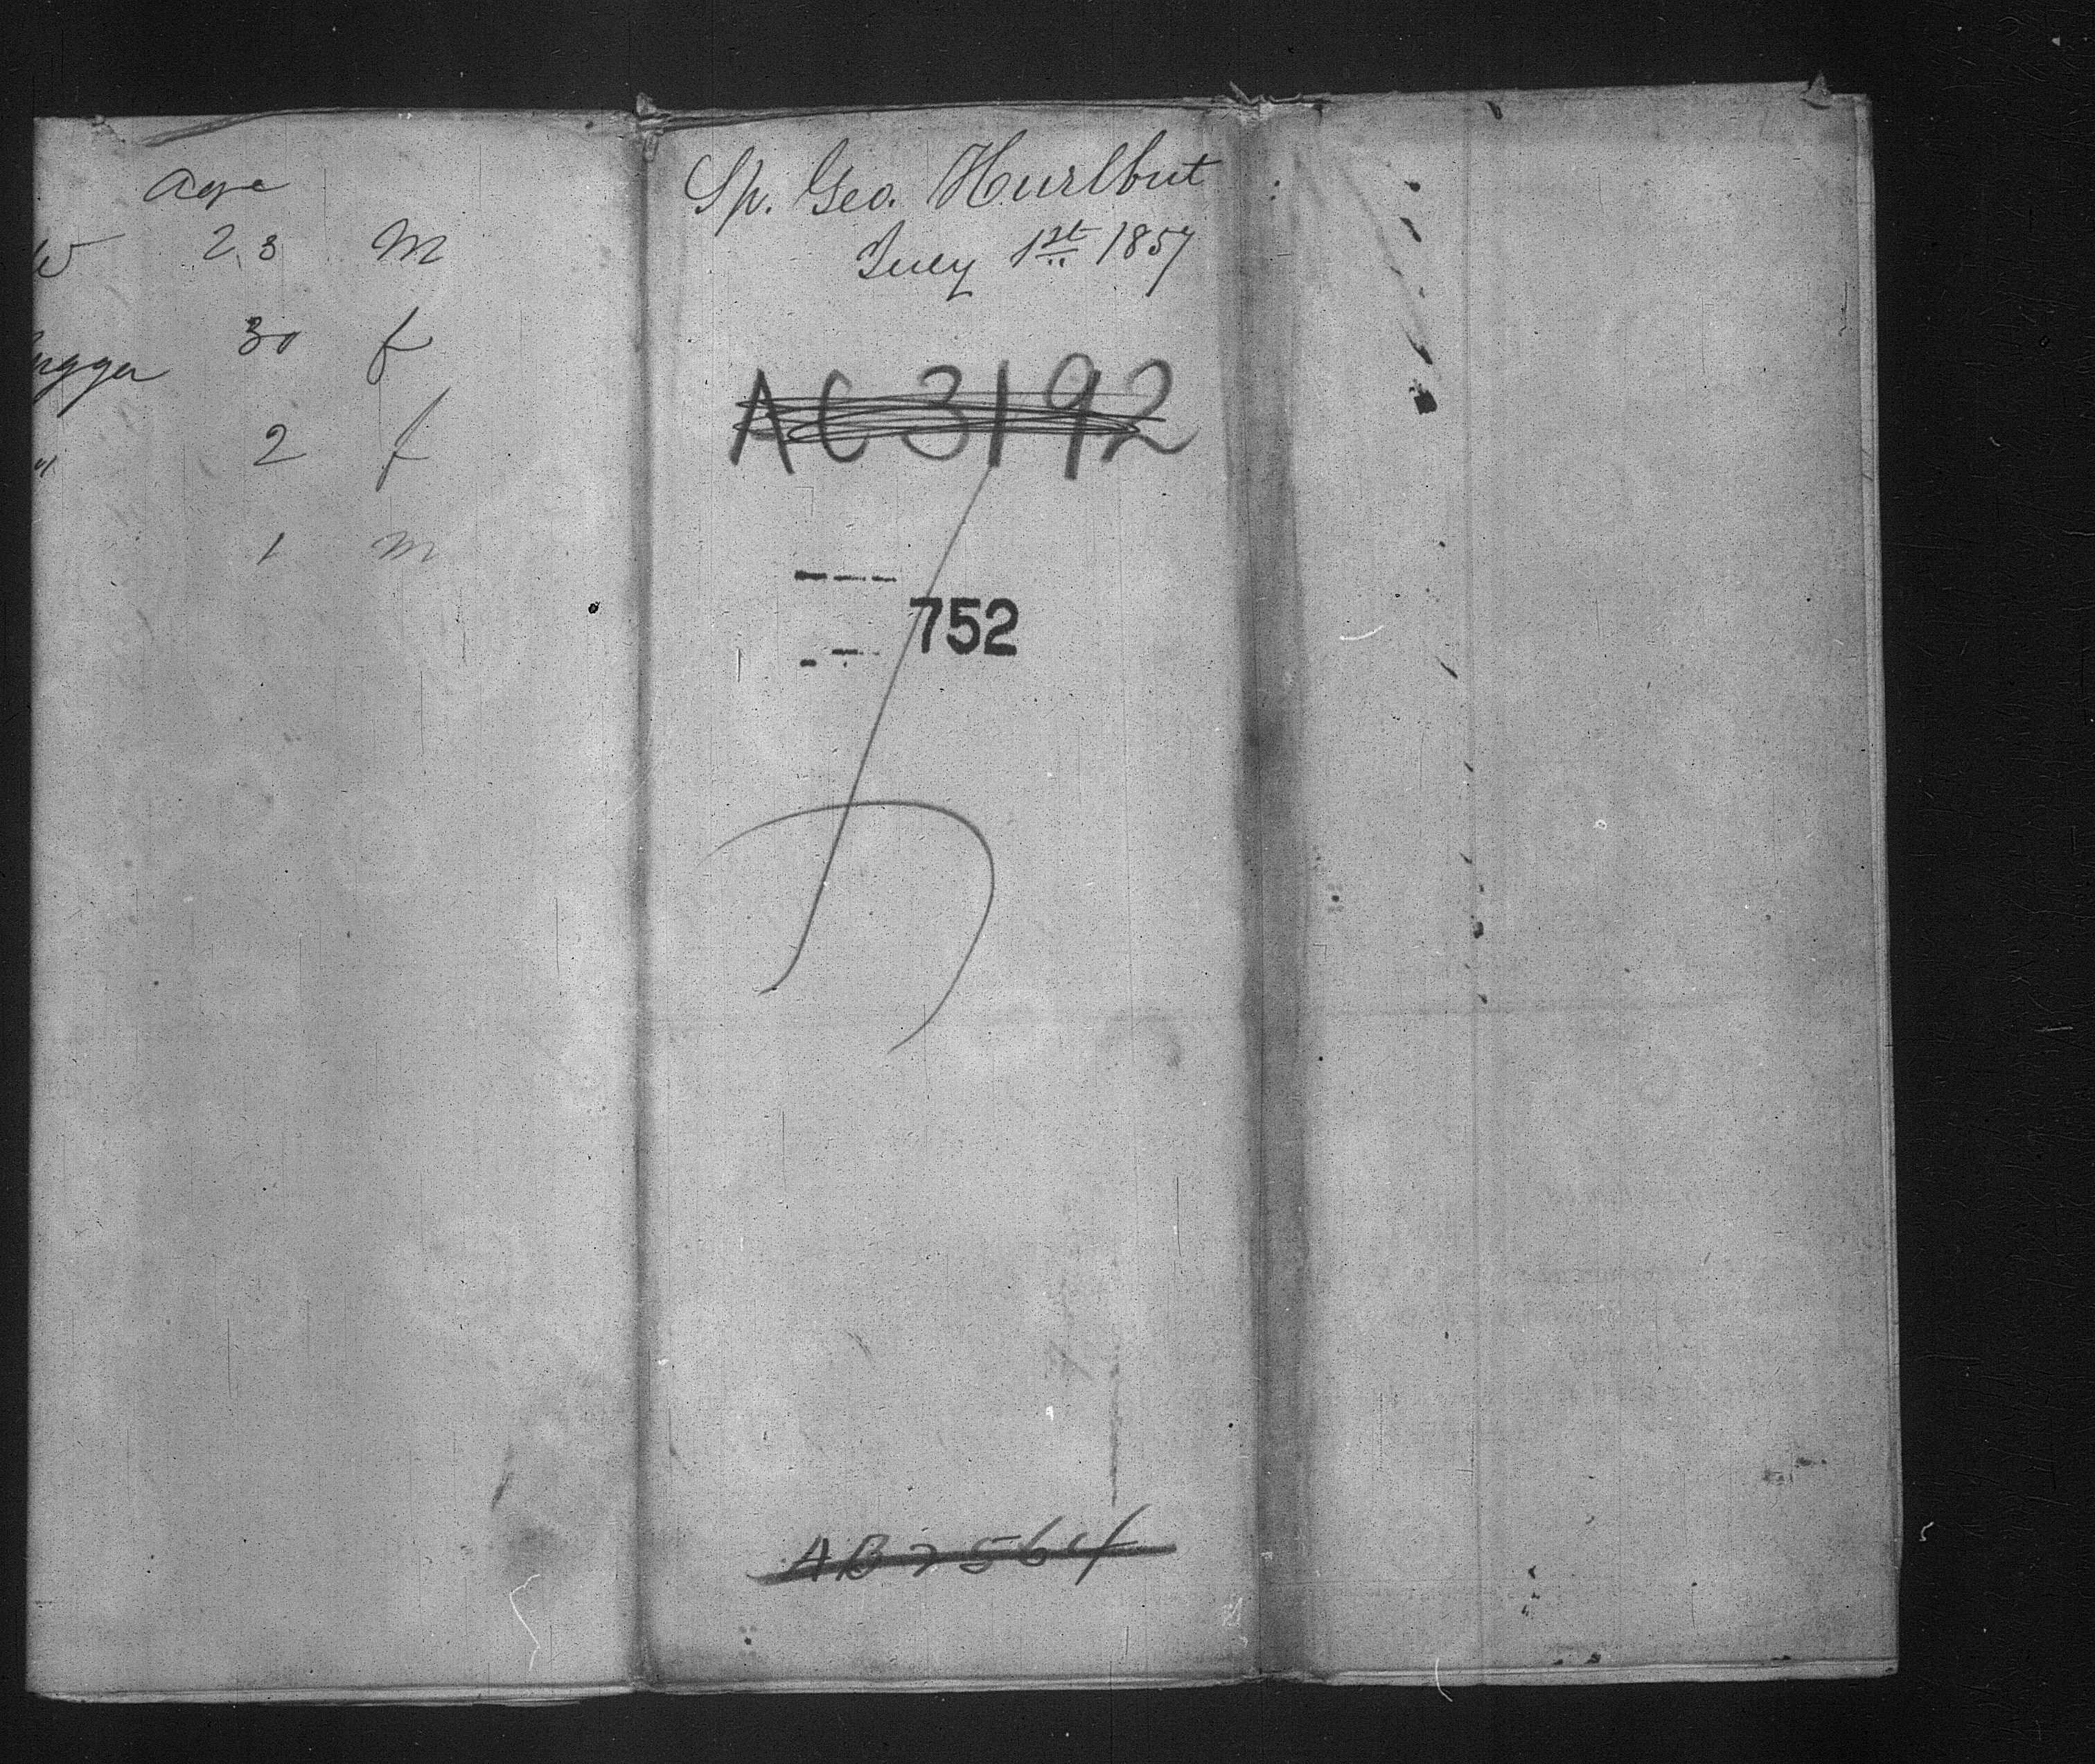 Age
23 M
30 f
2 f
1 m
Sp. Geo. Hurlbut
July 1st 1857
AC 3192
752
AB 2564